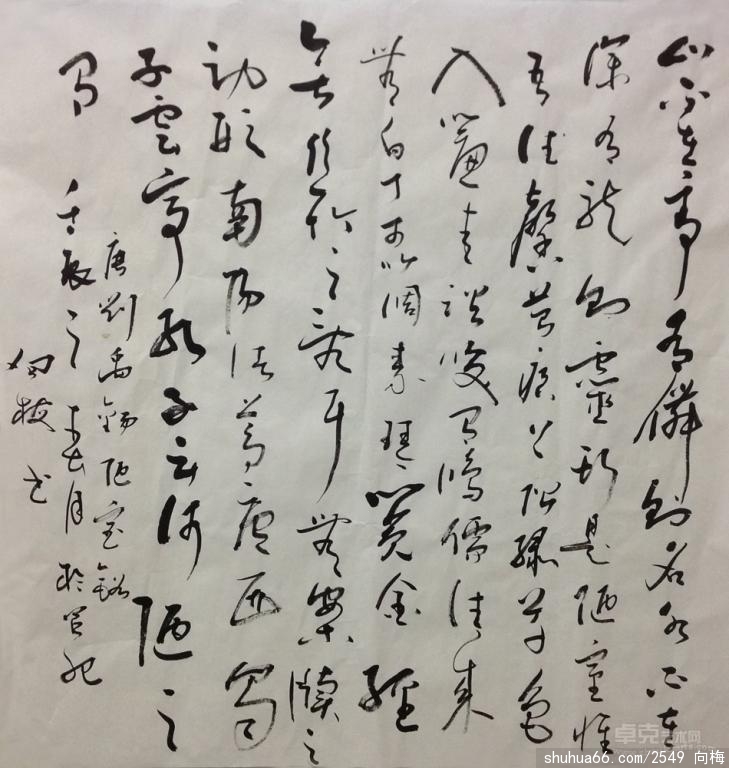 山不在高有僊則名水不在
深有龍則靈斯是陋室惟
吾德馨苔痕上階綠草色
入簾青談笑有鴻儒往來
無白丁可以調素琴閱金經
無絲竹之亂耳無案牘之
勞形南陽諸葛廬西蜀
子雲亭孔子云何陋之
有
唐劉禹錫陋室銘
壬辰之 月於
向梅書
卓克艺术网
shuhua66.com/2549 向梅